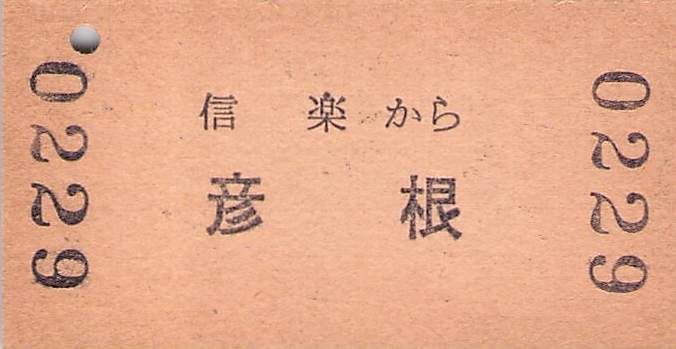 0229
信楽から
彦根
0229